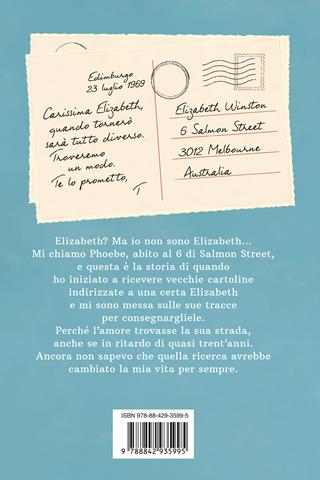 Edimburgo
23 luglio 1969
Carissima Elizabeth,
quando tornerò
sarà tutto diverso.
Troveremo
un modo.
Te lo prometto,
T
Elizabeth Winston
6 Salmon Street
3012 Melbourne
Australia
Elizabeth? Ma io non sono Elizabeth...
Mi chiamo Phoebe, abito al 6 di Salmon Street,
e questa è la storia di quando
ho iniziato a ricevere vecchie cartoline
indirizzate a una certa Elizabeth
e mi sono messa sulle sue tracce
per consegnargliele.
Perché l'amore trovasse la sua strada,
anche se in ritardo di quasi trent'anni.
Ancora non sapevo che quella ricerca avrebbe
cambiato la mia vita per sempre.
ISBN 978-88-429-3599-5
9 788842 935995